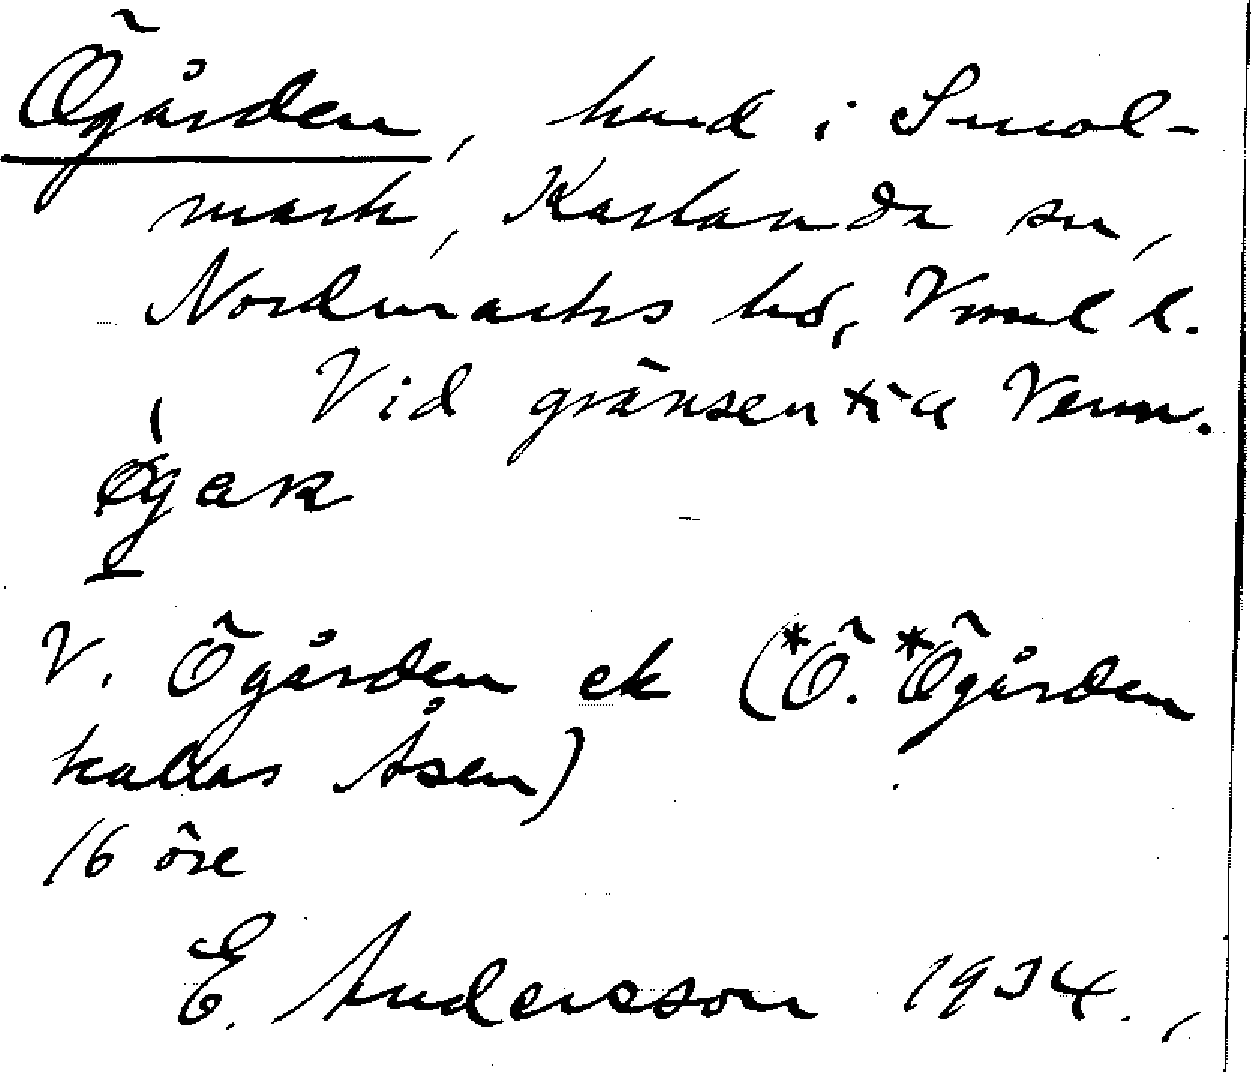 Ögården, hmd i Smol-
mark, Karlanda sn,
Nordmarks hd, Vrml l.
Vid gränsen till Verm.
øgaʀ
V. Ögården ek (*Ö. *Ögården
kallas Åsen)
16 öre
E. Andersson 1934.